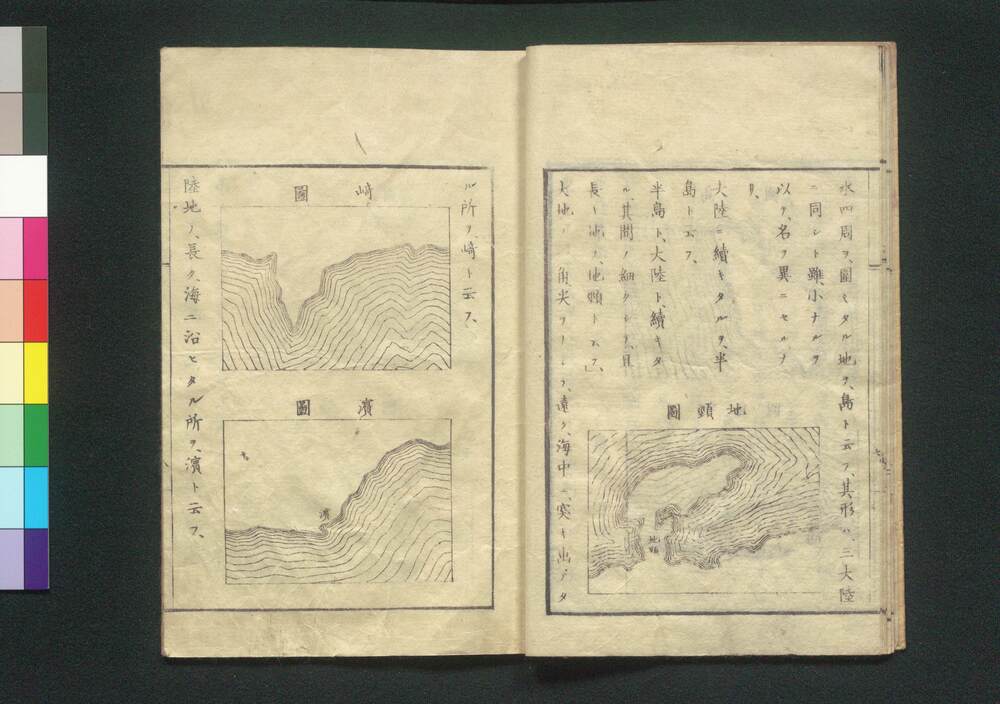 水四周ヲ、圍ミタル地ヲ、島ト云フ、其形ハ、三大陸
ニ同シト雖𪜈、小ナルヲ
以テ、名ヲ異ニセルナ
リ、
大陸ニ續キタルヲ、半
島ト云フ、
半島ト、大陸ト、續キタ
ル、其間ノ細クシテ、且
長キ地ヲ、地頸ト云フ、
大地ノ一角尖リテ、遠ク、海中ニ、突キ出テタ
地頸圖
地頸
ル所ヲ、崎ト云フ、
崎圖
濱圖
濱
陸地ノ、長ク、海ニ沿ヒタル所ヲ、濱ト云フ、